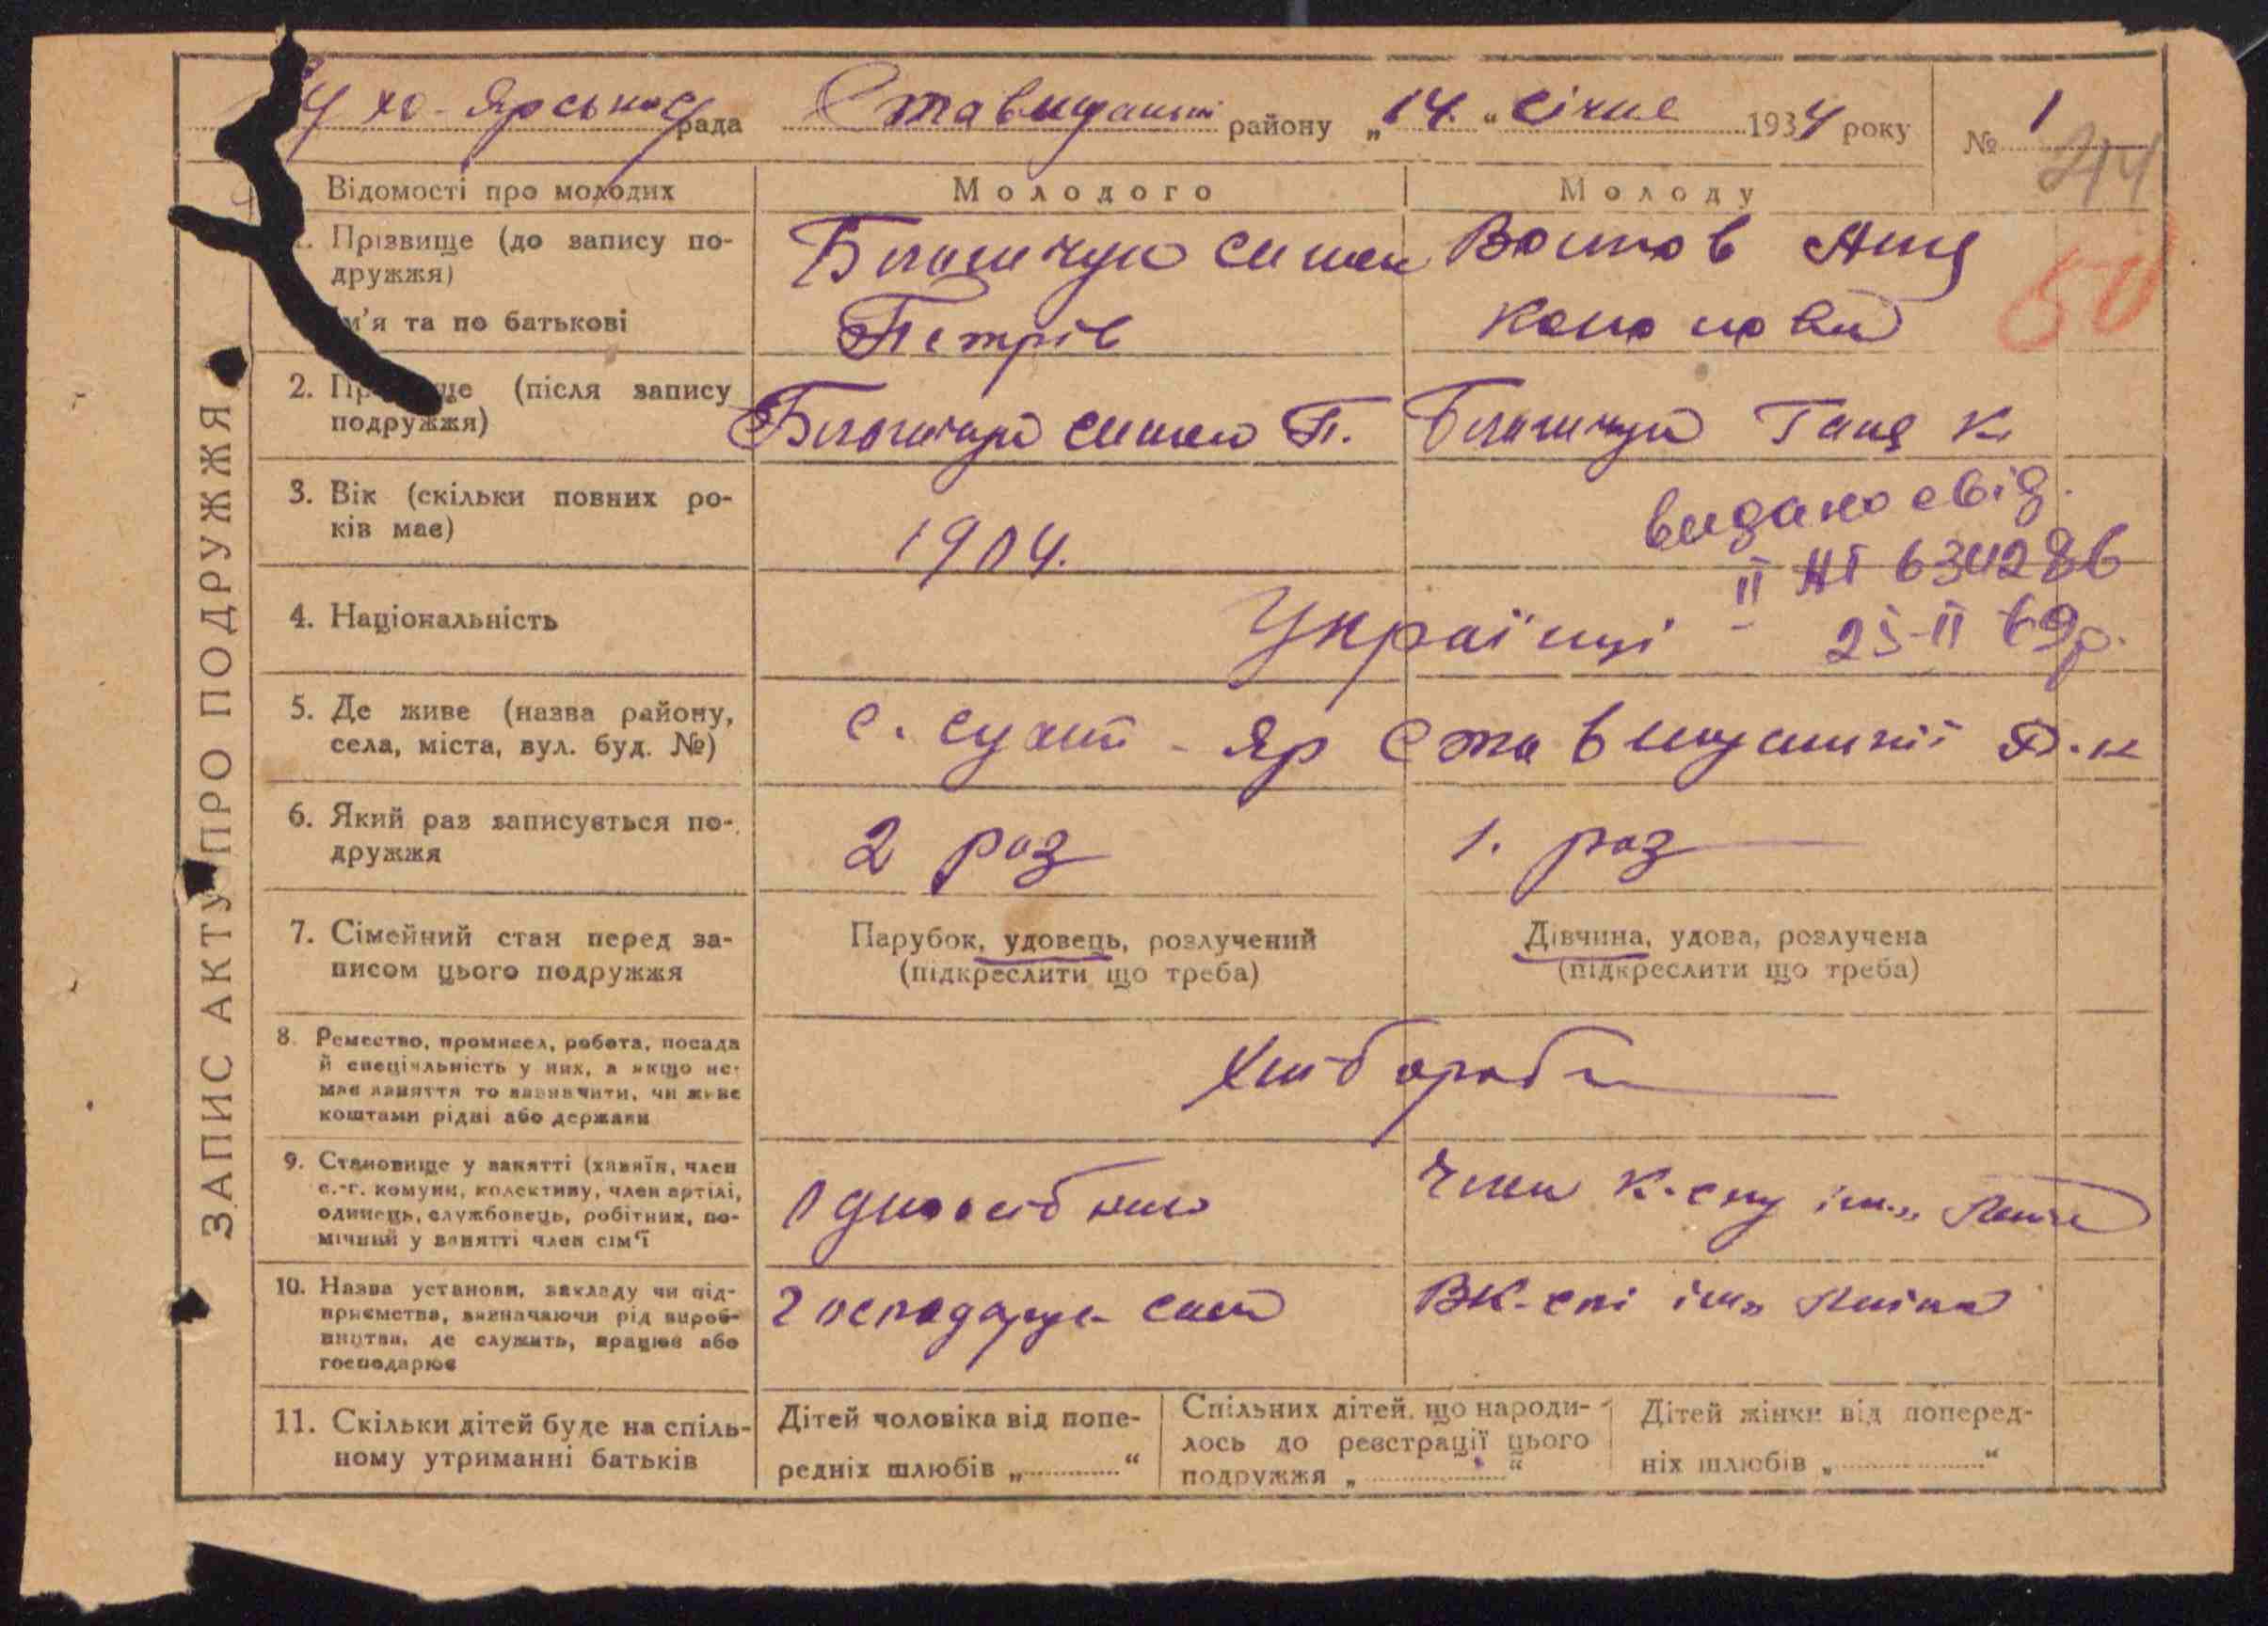 хо-Ярська рада Ставищанськ району „14.“ січня 1934 року № 1
44
Відомості про молодих Молодого Молоду
Прізвище (до запису по-
дружжя)
м'я та по батькові
Петрів
50
2. Пр ще (після запису
подружжя)
П. Ганя К.
3. Вік (скільки повних ро-
ків має)
1904.
видано свід.
II 634286
25-II 69р.
4. Національність
Українці
5. Де живе (назва району,
села, міста, вул. буд. №)
с. Сухий-Яр
6. Який раз записується по-
дружжя
2 раз 1. раз
7. Сімейний стан перед за-
писом цього подружжя
Парубок, удовець, розлучений
(підкреслити що треба)
Дівчина, удова, розлучена
(підкреслити що треба)
8. Ремество, промисел, робота, посада
й спеціяльність у них, а якщо не-
має заняття то зазначити, чи живе
коштами рідні або держави
Хлібороби
9. Становище у занятті (хазяїн, член
с.-г. комуни, колективу, член артілі,
одинець, службовець, робітник, по-
мічний у занятті член сім'ї
Одноосібник
Член К-спу ім.
10. Назва установи, закладу чи під-
приємства, визначаючи рід вироб-
ництва, де служить, працює або
господарює
ВК-спі ім.
11. Скільки дітей буде на спіль-
ному утриманні батьків
Дітей чоловіка від попе-
редніх шлюбів „ “
Спільних дітей, що народи-
лось до реєстрації цього
подружжя „ “
Дітей жінки від поперед-
ніх шлюбів „ “
ЗАПИС АКТУ ПРО ПОДРУЖЖЯ